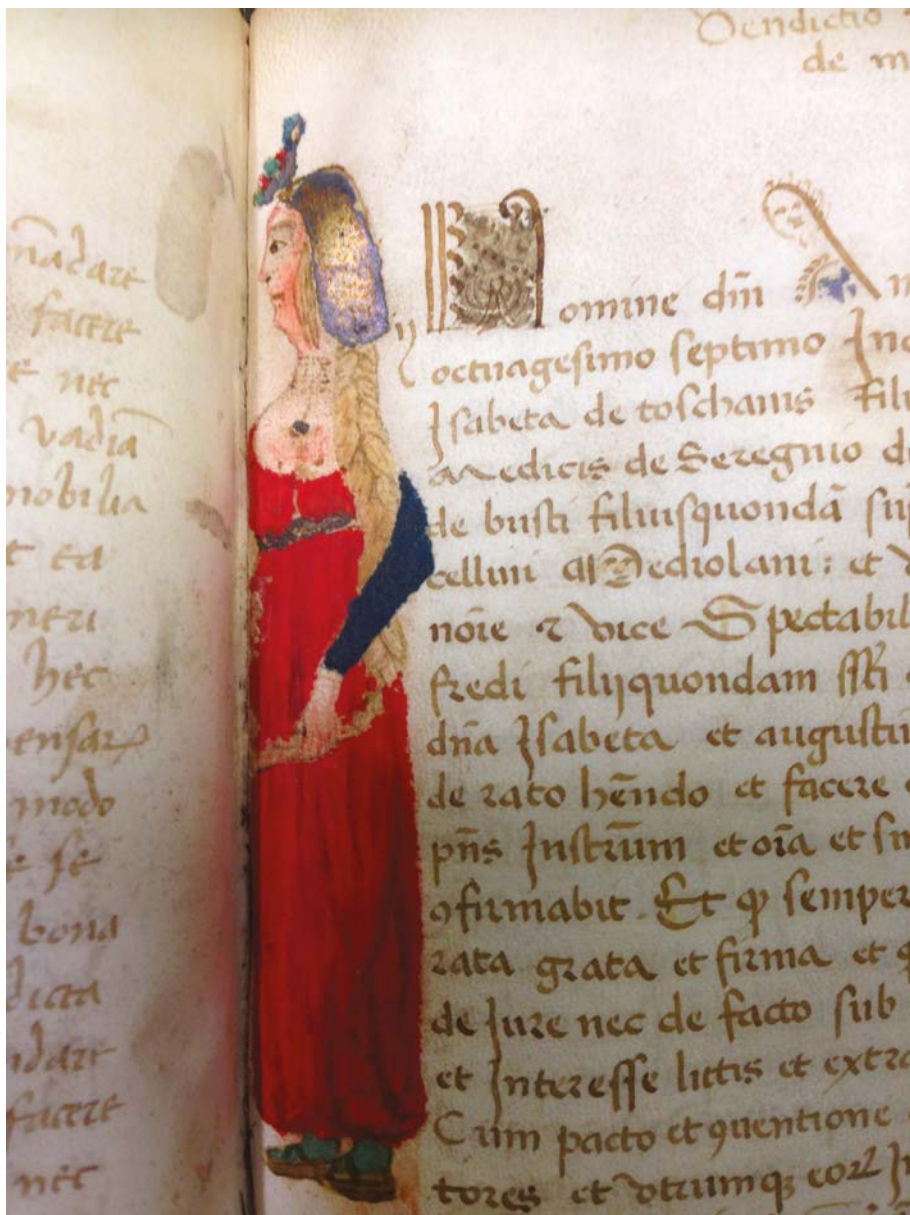 m̄adare
facere
nec
vadiā
mobilia
et ea
meri
hec
pensar
modo
se
bona
dicta
ndare
facere
nec
Venditio
de m
In Nomine dm̄ A m
octuagesimo septimo Ind
Isabeta de toschanis fili
Medicis de Seregnio d
de busti filiusquondā su
cellini Mediolani: et
nōie ⁊ vice Spectabil
fredi filijquondam
dn̄a Isabeta et augusti
de rato hēndo et facere
pn̄s Instrūm et oīa et si
ꝯfirmabit. Et ꝙ semper
rata grata et firma et
de Jure nec de facto sub
et Interesse littis et extra
Cum pacto et ꝯuentione
tores et vtrumqꝫ eoꝝ In